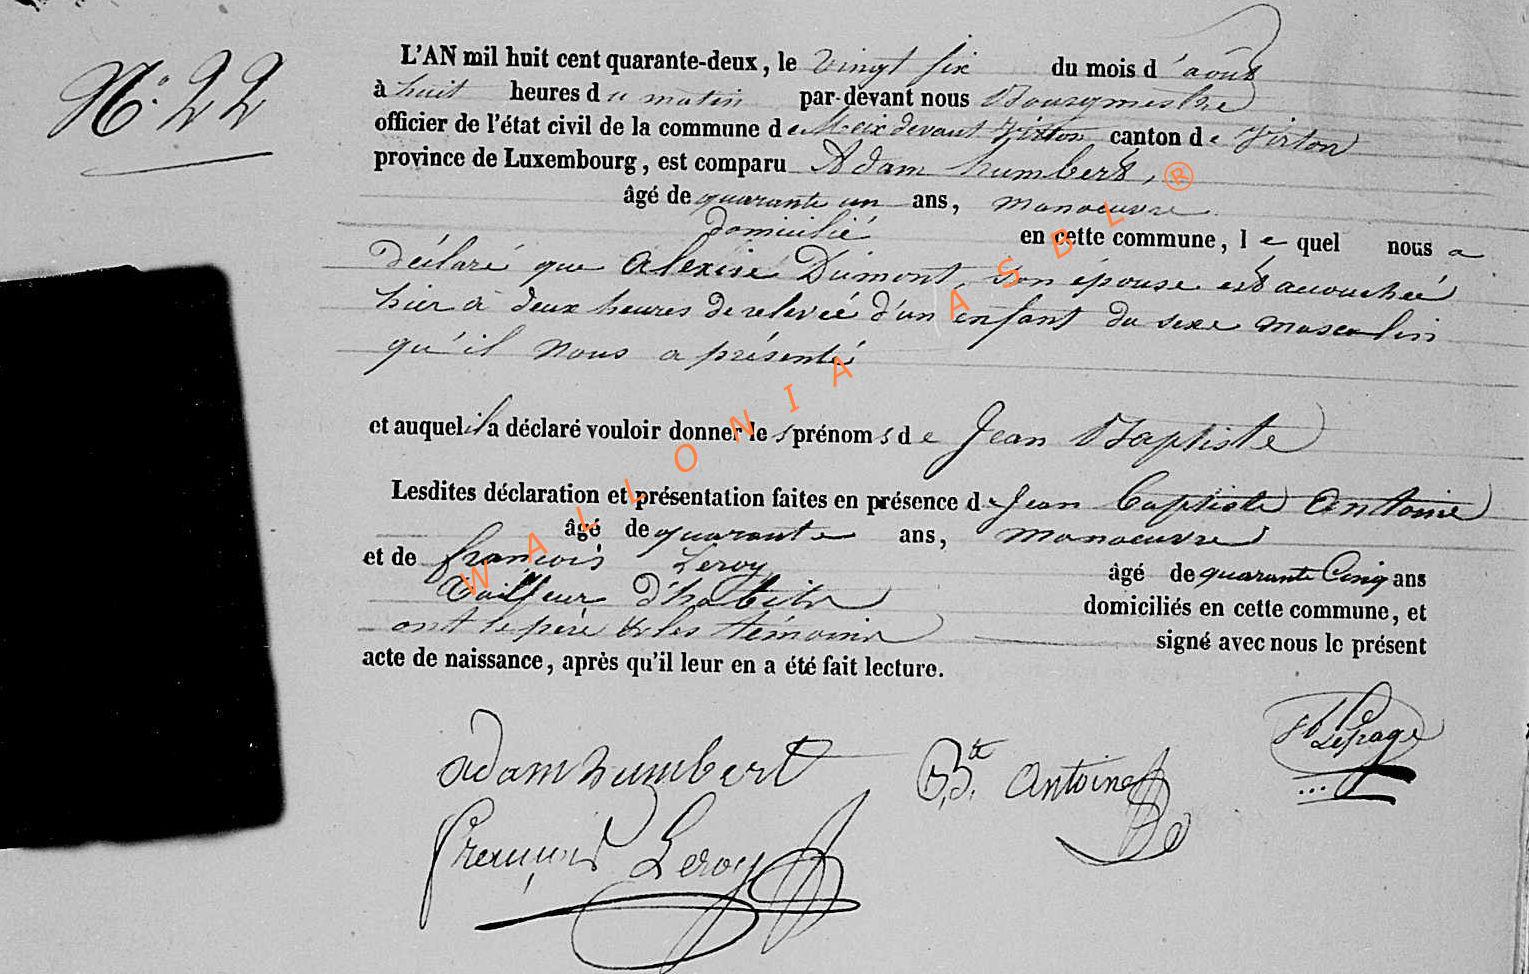 N.° 22
L'AN mil huit cent quarante-deux, le vingt six du mois d'août
à huit heures du matin par-devant nous Bourgmestre
officier de l'état civil de la commune de Meix devant Virton canton de Virton
province de Luxembourg, est comparu Adam humbert,
âgé de quarante un ans, manoeuvre
domicilié en cette commune, lequel nous a
déclaré que Alexise Dumont, son épouse est accouchée
hier à deux heures de relevée d'un enfant du sexe masculin
qu'il nous a présenté
et auquel il a déclaré vouloir donner les prénoms de Jean Baptiste
Lesdites déclaration et présentation faites en présence de Jean Baptiste Antoine
âgé de quarante ans, manoeuvre
et de françois Leroy âgé de quarante Cinq ans
tailleur d'habits domiciliés en cette commune, et
ont le père & les témoins signé avec nous le présent
acte de naissance, après qu'il leur en a été fait lecture.
adam humbert
J.Bte Antoine
Lepage
françois Leroy
WALLONIA ASBL ®